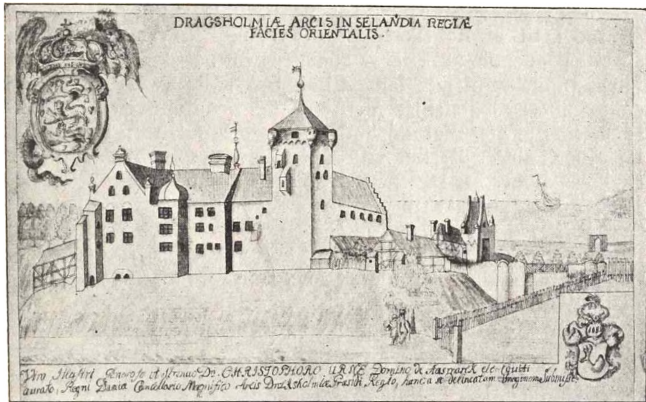 DRAGSHOLMIÆ ARCIS IN SELANDIA REGIÆ
FACIES ORIENTALIS.
Viro Illustri Generoso et Strenuo Dn. CHRISTOPHORO URSÆ Domino de
aurato, Regni Daniæ Cancellario Magnifico Arcis Dragsholmiæ Præsidi Regio, hanc a se delineatam